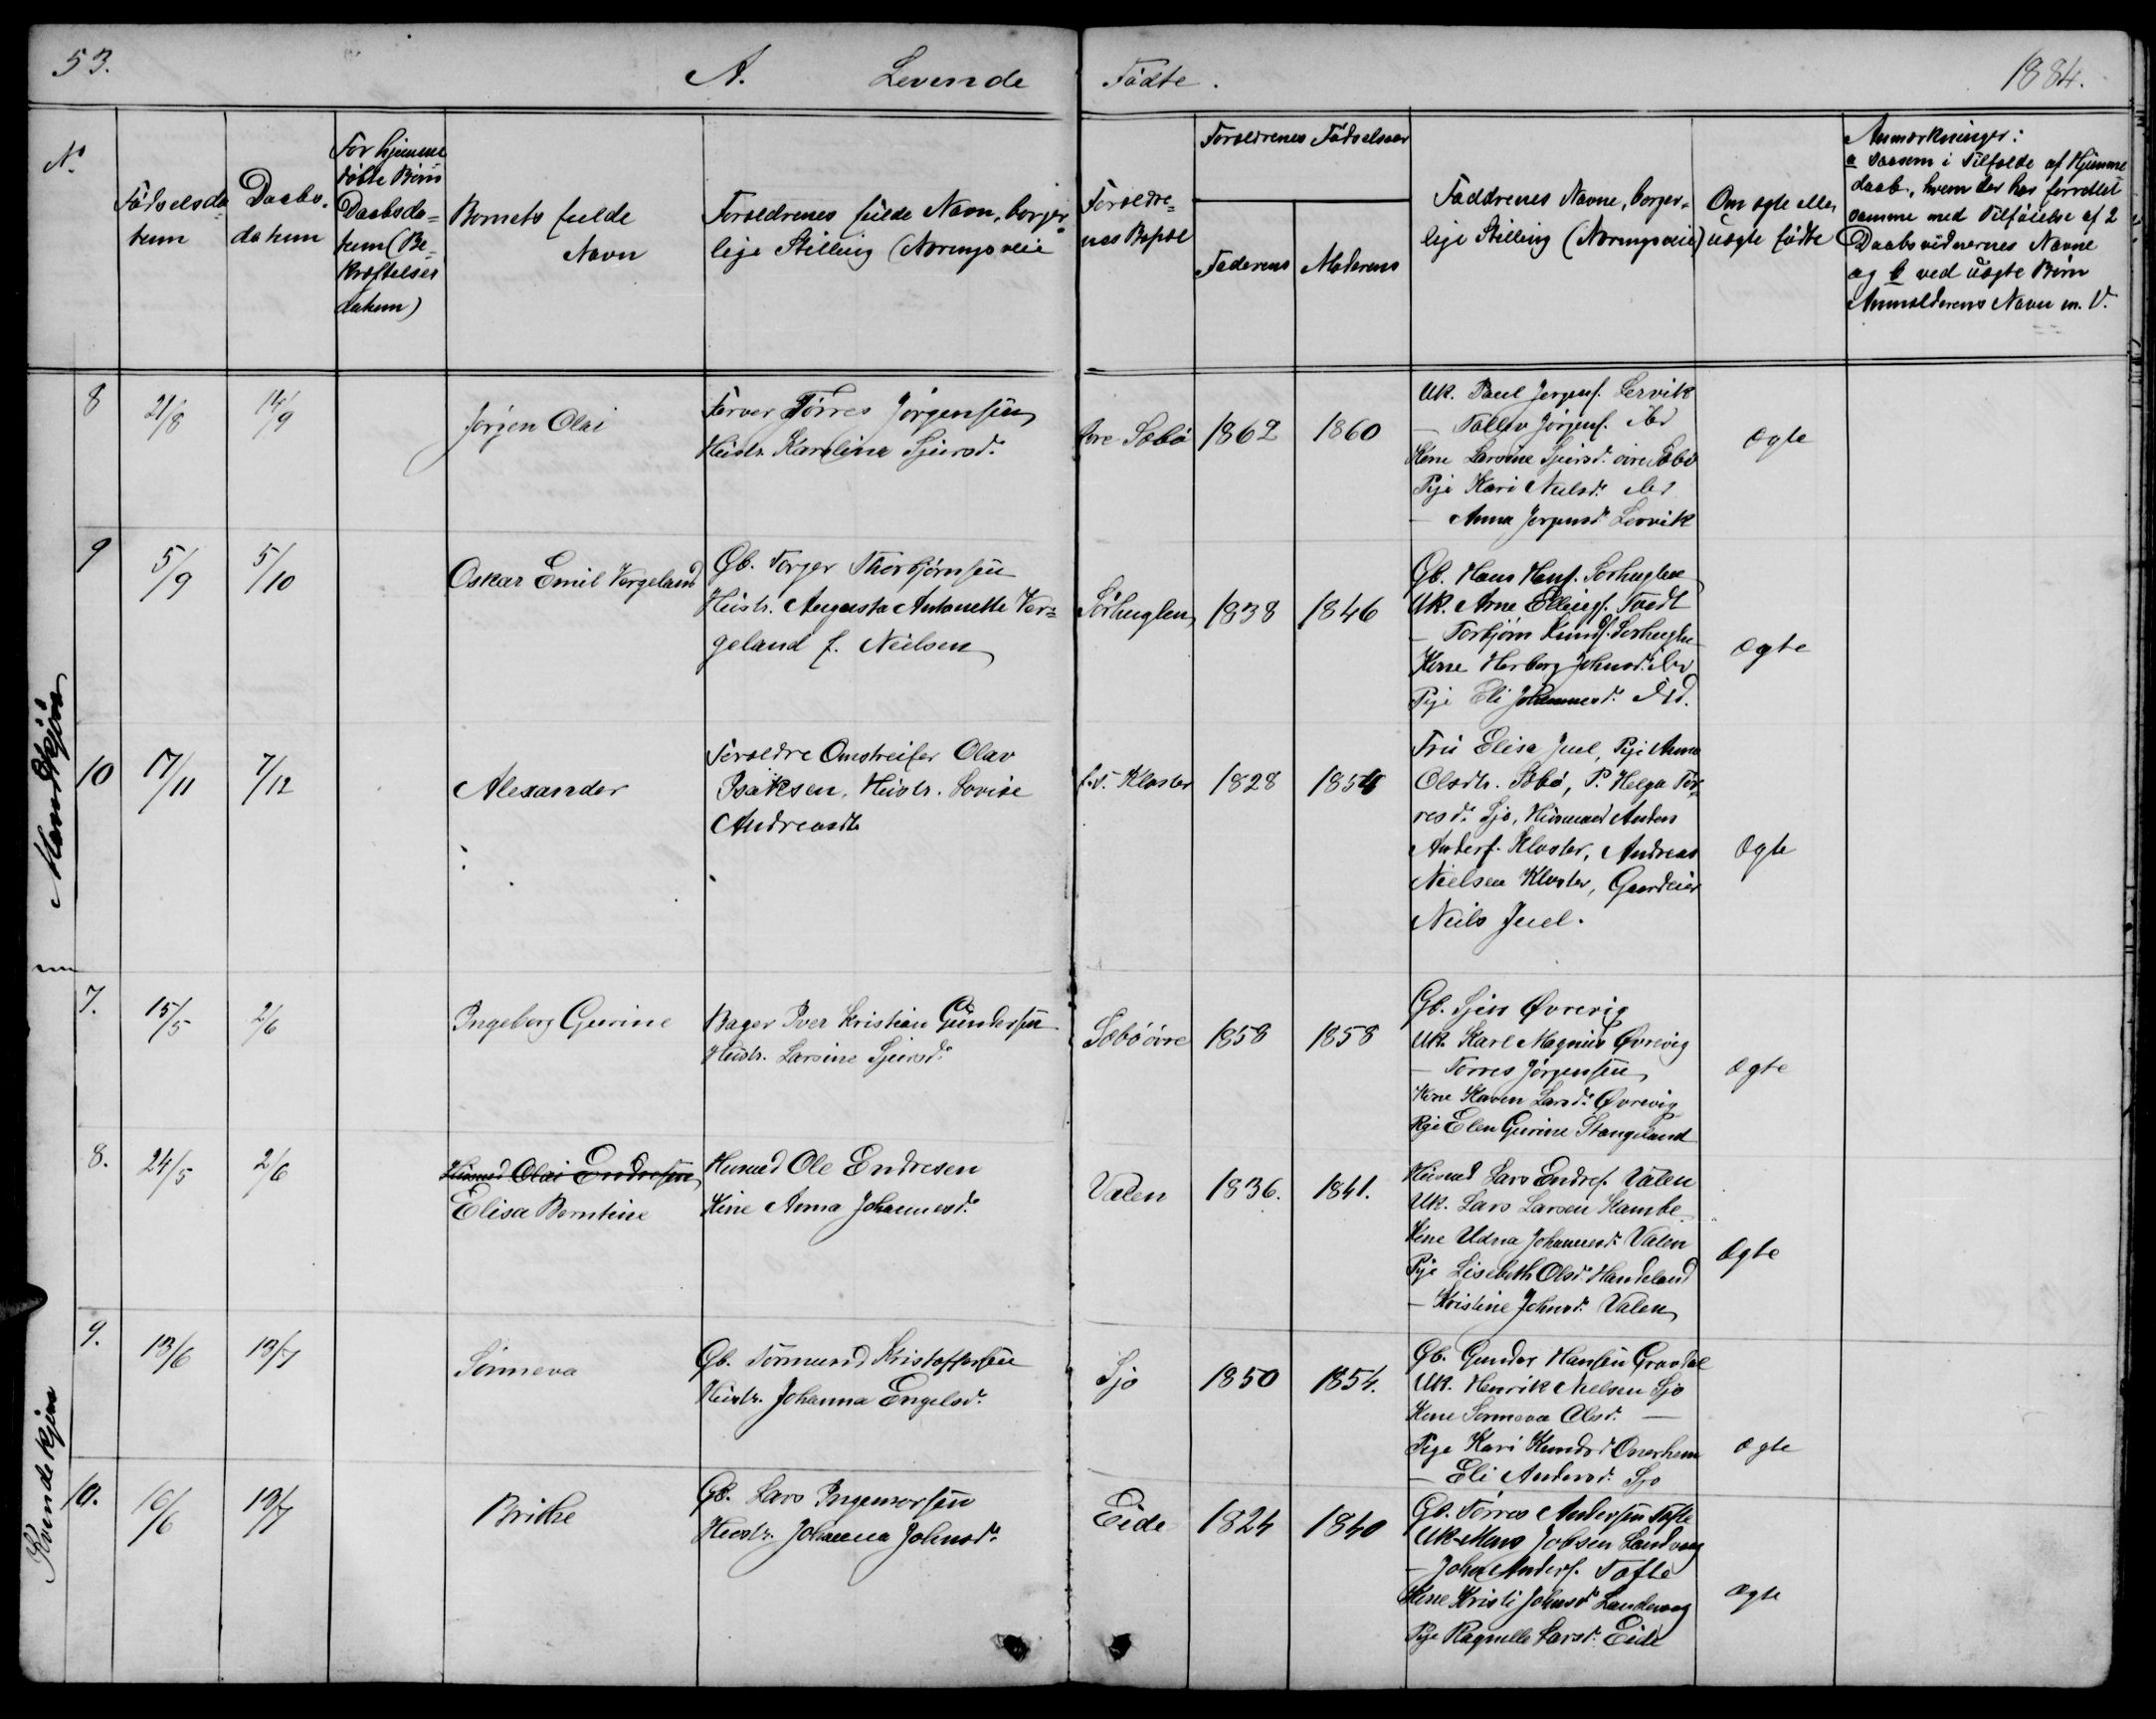 53. A. Levende Fødte. 1884.
No.
Fødselsda=
tum
Daabs-
datum
For hjemme
døbte Børn
Daabsda=
tum (Be-
kræftelses
datum)
Barnets fulde
Navn
Foreldrenes fulde Navn, borger
lige Stilling (Næringsveie
Foreldre=
nes Bopæl
Forældrenes Fødselsaar
Faderens
Moderens
Faddrenes Navne, borger=
lige Stilling (Næringsveie)
Om ægte eller
uægte fødte
Anmærkninger:
a saasom i Tilfælde af Hjemme
daab, hvem der har forrettet
samme med Tilføielse af 2
Daabsvidnernes Navne
og b ved uægte Børn
Anmelderens Navn m. V.
Mandkjøn
8 21/8 14/9 Jørgen Olai
Farver Tørres Jörgensen
Hustr. Karolina Sjursd.
Sæbø 1862 1860
Uk. Paul Jørgens. Lervik
— Tollev Jørgens. ibd
Kone Larsine Sjursd. øire Sæbø
Pige Kari Nielsd. ibd
— Anna Jørgensd. Lervik
ægte
9 5/9 5/10 Oskar Emil Vergeland
Gb. Torger Thorbjørnsen
Hustr. Augusta Antonette Ver=
geland f. Nielsen
Sørhuglen 1838 1846
Gb. Hans Hans. Sørhuglen
Uk. Arne Ellings. Tvedt
— Torbjørn Knuds. Sørhuglen
Kone Herborg Johnsd. ibd
Pige Eli Johannesd. ibd.
ægte
10 17/11 7/12 Alexander
Forældre Omstreifer Olav
Isaksen, Hustr. Lovise
Andreasdtr
Kloster 1828 1854
Fru Elisa Juel, Pige Anna
Olsdtr. Sæbø, P. Helga Tør-
resd. Sjo, Husmand Anders
Anders. Kloster, Andreas
Nielsen Kloster, Gaardeier
Niels Juel.
Ægte
Kvindekjøn
7. 15/5 2/6 Ingeborg Gurine
Bager Iver Kristian Gundersen
Hustr. Larsine Sjursd.
Sæbøøire 1858 1858
Gb. Sjur Øvrevig
Uk. Karl Magnus Øvrevig
— Tørres Jørgensen
Kone Karen Larsd. Øvrevig
Pige Elen Gurine Stangeland
ægte
8. 24/5 2/6 Husmd Olai Endresen
Elisa Berntine
Husmd Ole Endresen
Kone Anna Johannesd.
Valen 1836. 1841.
Husmd Lars Endres. Valen
Uk. Lars Larsen Kambe
Kone Udna Johannesd. Valen
Pige Lisebeth Olsd. Handeland
— Kristine Johnsd. Valen
Ægte
9. 13/6 13/7 Sønneva
Gb. Tormund Kristoffersen
Hustr. Johanna Engelsd.
Sjo 1850 1854.
Gb. Gunder Hansen Gravdal
Uk. Henrik Nielsen Sjo
Kone Sønneva Olsd. —
Pige Kari Knudsd Onarheim
— Eli Andersd. Sjo
ægte
10. 16/6 13/7 Brithe
Gb. Lars Ingemorsen
Hustr. Johanna Johnsd.
Eide 1824 1840
Gb. Tørres Andersen Tofte
Uk. Mons Johnsen Landvaag
— John Anders. Tofte
Kone Kristi Johnsd. Landvaag
Pige Ragnille Larsd. Eide
ægte